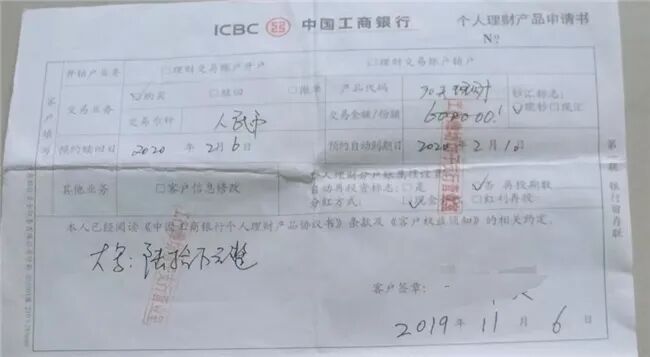 ICBC 中国工商银行 个人理财产品申请书
No
客户填写
开销户业务 □理财交易账户开户 □理财交易账户销户
交易业务 购买 □赎回 □撤单 产品代码 钞汇标志：
交易币种 人民币 交易金额/份额 现钞□现汇
预约赎回日 2020 年 2月6日 预约自动到期日 2020 年 2月1 日
其他业务 □客户信息修改 本人理财分户账属性设置
自动再投资标志：□是 否 再投期数
分红方式： 现金 □红利再投
本人已经阅读《中国工商银行个人理财产品协议书》条款及《客户权益须知》的相关约定。
大写：陆拾万元整
客户签章：
2019 年 11 月 6 日
第一联 银行留存联